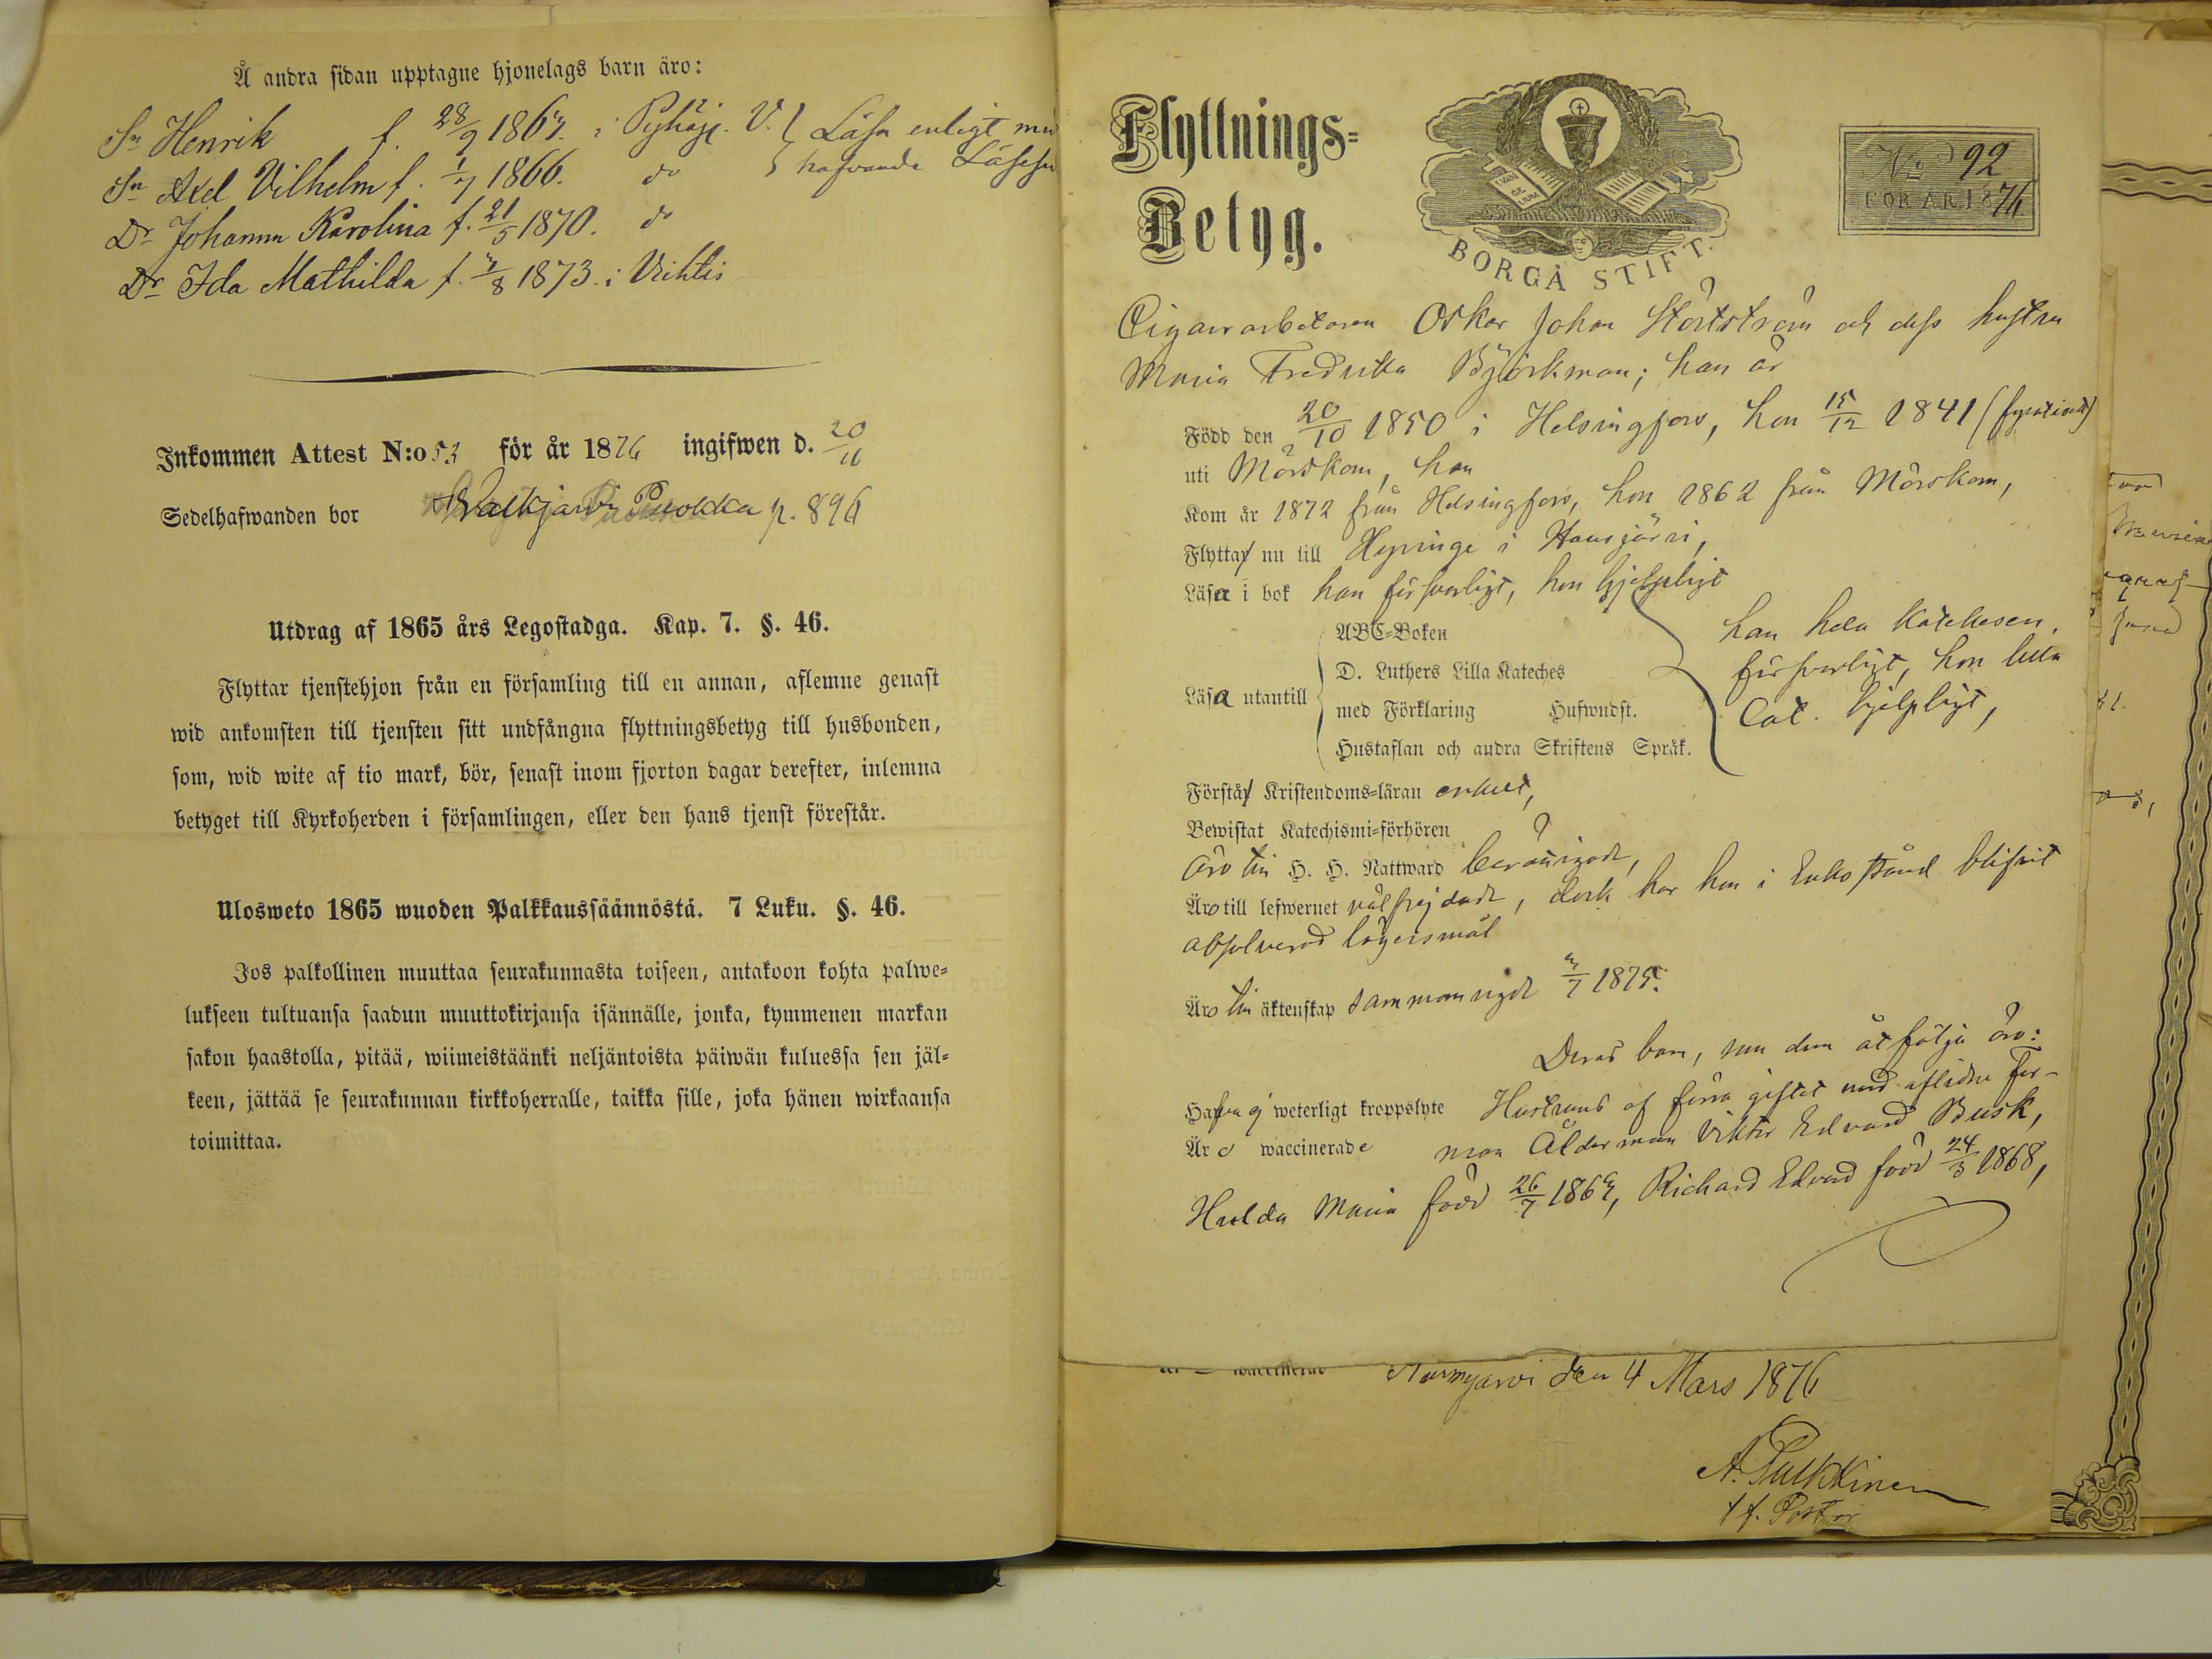 Å andra sidan upptagne hjonelags barn äro:
Sn Henrik f. 28/9 1863. i Pyhäj. V. Läsa enligt
Sn Axel Vilhelm f. 1/7 1866. do hafvande
Dr Johanna Karolina f. 21/5 1870. do
Dr Ida Mathilda f. 4/8 1873. i Vichtis
Inkommen Attest N:o 53 för år 1876 ingifwen d. 20/11
Sedelhafwanden bor Puokka p. 896
Utdrag af 1865 års Legostadga. Kap. 7. §. 46.
Flyttar tjenstehjon från en församling till en annan, aflemne genast
wid ankomsten till tjensten sitt undfångna flyttningsbetyg till husbonden,
som, wid wite af tio mark, bör, senast inom fjorton dagar derefter, inlemna
betyget till Kyrkoherden i församlingen, eller den hans tjenst förestår.
Ulosweto 1865 wuoden Palkkaussäännöstä. 7 Luku. §. 46.
Jos palkollinen muuttaa seurakunnasta toiseen, antakoon kohta palwe=
lukseen tultuansa saadun muuttokirjansa isännälle, jonka, kymmenen markan
sakon haastolla, pitää, wiimeistäänki neljäntoista päiwän kuluessa sen jäl=
keen, jättää se seurakunnan kirkkoherralle, taikka sille, joka hänen wirkaansa
toimittaa.
Flyttnings=
Betyg.
BORGÅ STIFT.
No 92
FÖR ÅR 1876.
Cigarrarbetaren Oskar Johan Störtström och dess hustru
Maria Fredrika Björkman; han är
Född den 20/10 1850 i Helsingfors, hon 15/12 1841
uti Mörskom, han
Kom år 1872 från Helsingfors, hon 1862 från Mörskom,
Flytta nu till Hyvinge i Hausjärvi,
Läsa i bok han försvarligt, hon hjelpligt
ABC=Boken
D. Luthers Lilla Kateches
Läsa utantill
med Förklaring Hufwudst.
Hustaflan och andra Skriftens Språk.
han hela Katechesen
försvarligt, hon lilla
Cat. hjelpligt,
Förstå Kristendoms=läran enkelt,
Bewistat Katechismi=förhören
äro till H. H. Nattward berättigade,
Äro till lefwernet välfrejdade, dock har hon i Enkostånd blifvit
absolverad lägersmål
Äro till äktenskap sammanvigde 4/7 1875.
Deras barn, som dem åtfölja äro:
Hafva ej weterligt kroppslyte Hustruns af förra giftet med aflidne For-
Äro waccinerade man Ålderman Viktor Edvard Busk,
Hulda Maria född 26/7 1864, Richard Edvard född 24/3 1868,
waccinerad Nurmijärvi den 4 Mars 1876
A. Pulkkinen
t f. Pastor